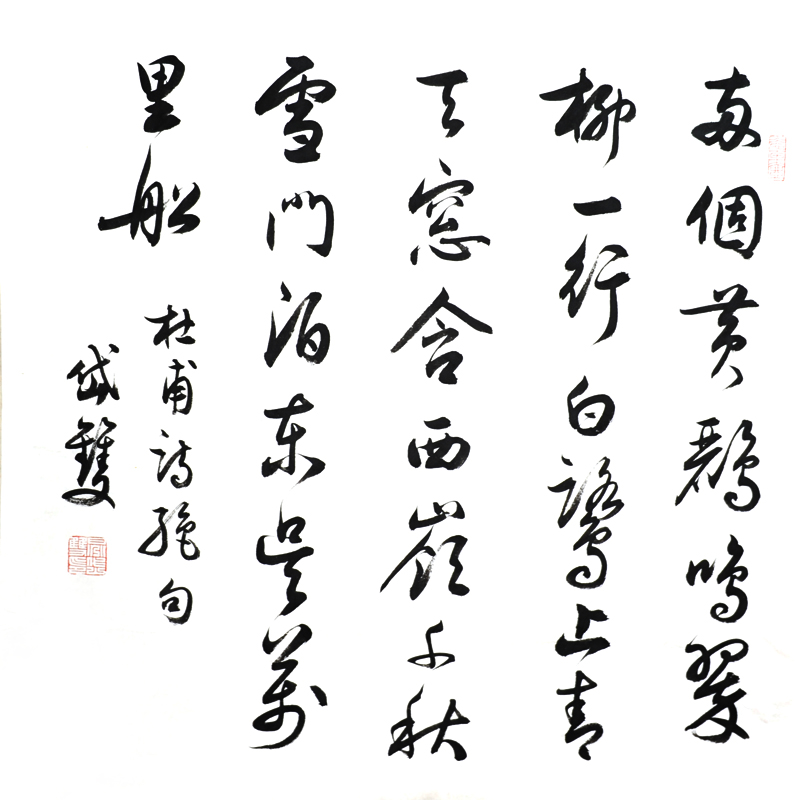 兩個黃鸝鳴翠
柳一行白鷺上青
天窓含西嶺千秋
雪門泊東吳萬
里船
杜甫詩絶句
岱雙